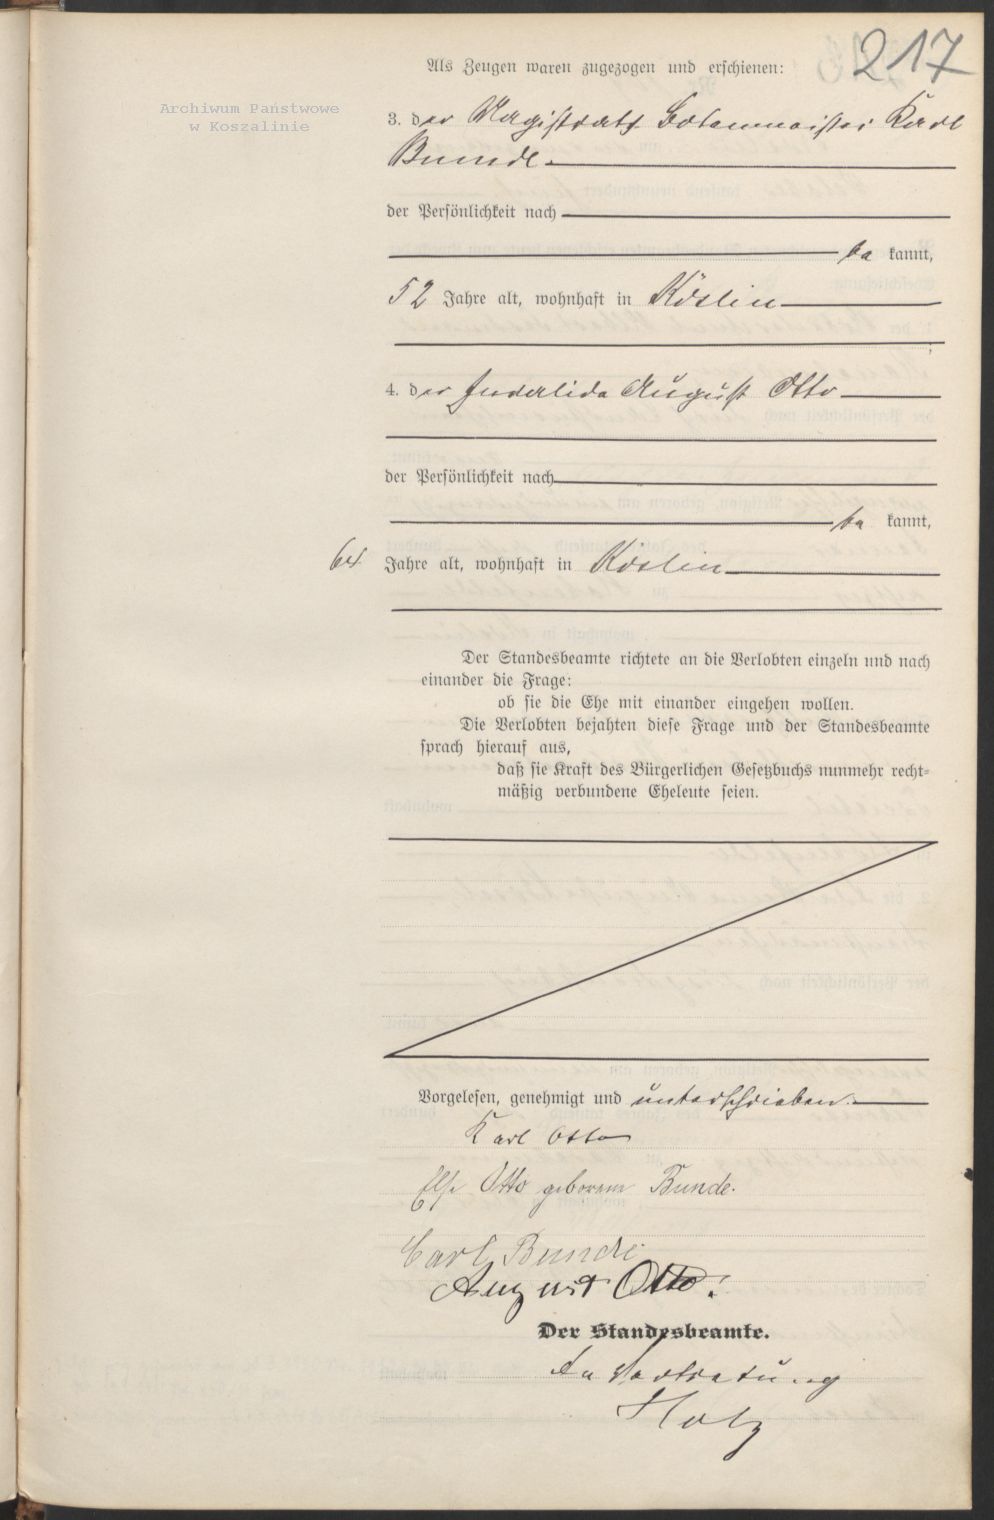 217
Als Zeugen waren zugezogen und erschienen:
Archiwum Państwowe
w Koszalinie
3. der Magistrats Botenmeister Karl
Bunde
der Persönlichkeit nach
be kannt,
52 Jahre alt, wohnhaft in Köslin
;
4. der Invalide August Otto
der Persönlichkeit nach
be kannt,
64 Jahre alt, wohnhaft in Köslin
Der Standesbeamte richtete an die Verlobten einzeln und nach
einander die Frage:
ob sie die Ehe mit einander eingehen wollen.
Die Verlobten bejahten diese Frage und der Standesbeamte
sprach hierauf aus,
daß sie Kraft des Bürgerlichen Gesetzbuchs nunmehr recht-
mäßig verbundene Eheleute seien.
Vorgelesen, genehmigt und unterschrieben.
Karl Otto
Else Otto geborene Bunde.
Carl Bunde
August Otto.
Der Standesbeamte.
In Vertretung
Holz